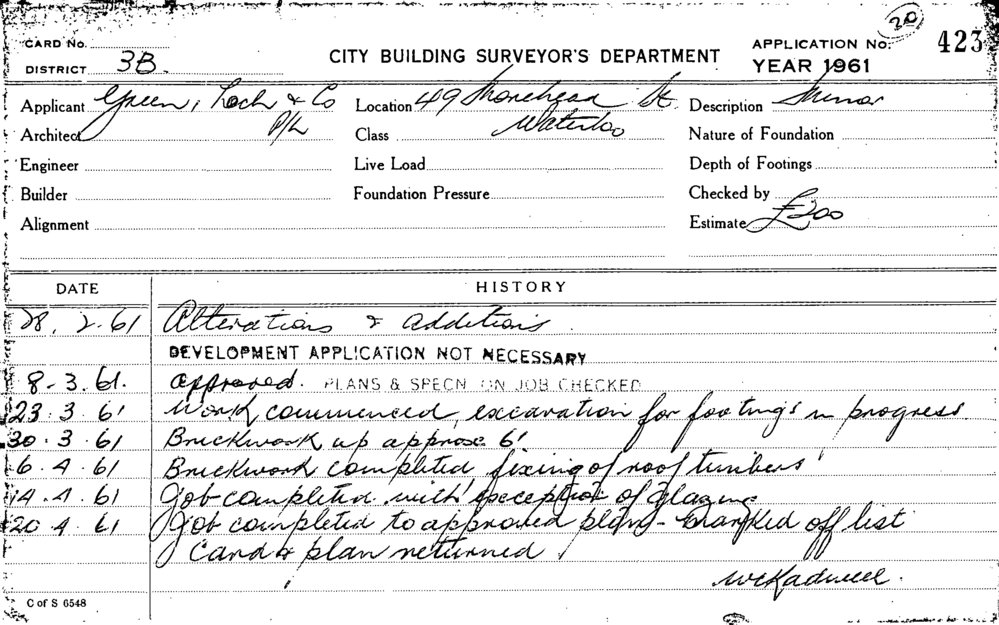 20
CARD No.
DISTRICT 3B.
CITY BUILDING SURVEYOR'S DEPARTMENT
APPLICATION No. 423
YEAR 1961
Applicant Green, Loch & Co P/L
Location 49 St. Waterloo
Description Minor
Architect
Class
Nature of Foundation
Engineer
Live Load
Depth of Footings
Builder
Foundation Pressure
Checked by
Alignment
Estimate £200
DATE HISTORY
28. 2. 61 Alterations & additions
DEVELOPMENT APPLICATION NOT NECESSARY
8-3.61. approved. PLANS & SPECN ON JOB CHECKED
23.3.61 Work commenced, excavation for footings in progress.
30.3.61 Brickwork up approx 6'
6.4.61 Brickwork completed fixing of roof timbers
14.4.61 Job completed with exception of glazing
20.4.61 Job completed to approved plan - marked off list
Card & plan returned
C of S 6548